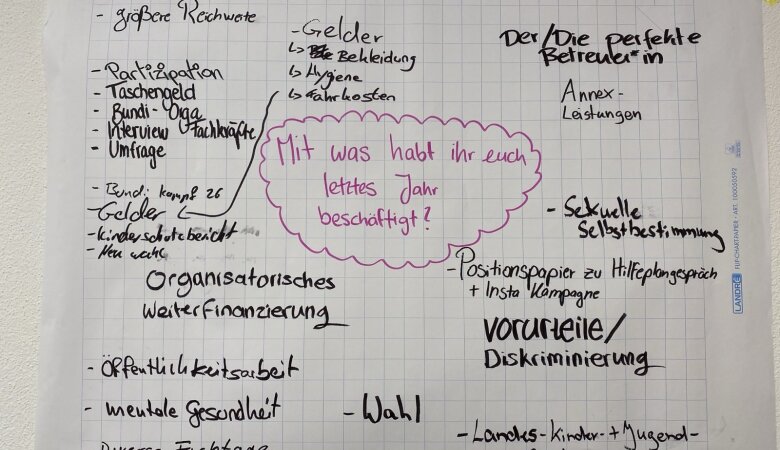 - größere Reichweite
- Partizipation
- Taschengeld
- Bundi-Orga
- Interview Fachkräfte
- Umfrage
- Bundi kampf 26
- Gelder
- Kinderschutzbericht
- Neu wahl
Organisatorisches
Weiterfinanzierung
- Öffentlichkeitsarbeit
- mentale Gesundheit
- Gelder
↳ Bekleidung
↳ Hygiene
↳ Fahrkosten
Mit was habt ihr euch
letztes Jahr
beschäftigt?
- Wahl
Der/Die perfekte
Betreuer*in
Annex-
Leistungen
- Sexuelle
Selbstbestimmung
- Positionspapier zu Hilfeplangespräch
+ Insta Kampagne
Vorurteile/
Diskriminierung
- Landes-Kinder-+Jugend-
LANDRÉ FLIP-CHARTPAPIER · ART. 100050592